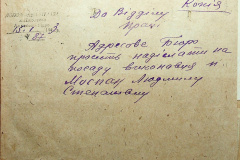 Копія
До Відділу
Праці
Адресове Бюро
просить надіслати на
посаду виконавця п.
Моспан Людмилу
Степанівну